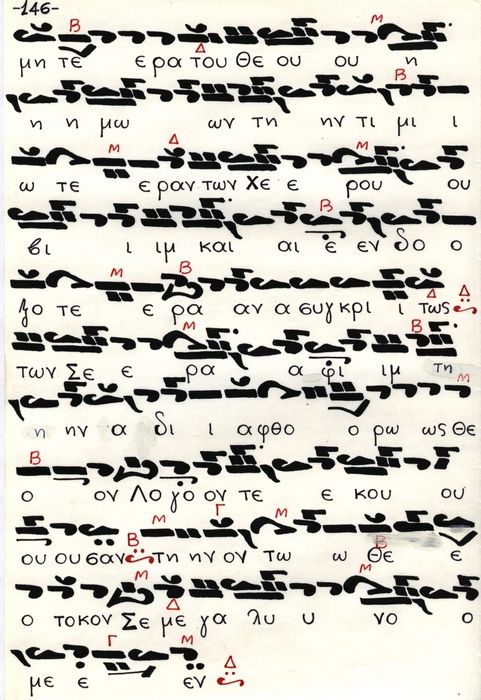 -146-
μη τε ε ρα του Θε ου ου η
η η μω ων τη ην τι μι ι
ω τε ε ραν των Χε ε ρου ου
βι ι ιμ και αι ε εν δο ο
ξο τε ε ρα αν α συγ κρι ι τως
των Σε ε ρα α φι ιμ τη
η ην α δι ι α φθο ο ρω ως Θε
ο ον Λο γο ον τε ε κου ου
ου ου σαν τη ην ον τω ω Θε ε
ο τοκον Σε με γα λυ υ νο ο
με ε εν